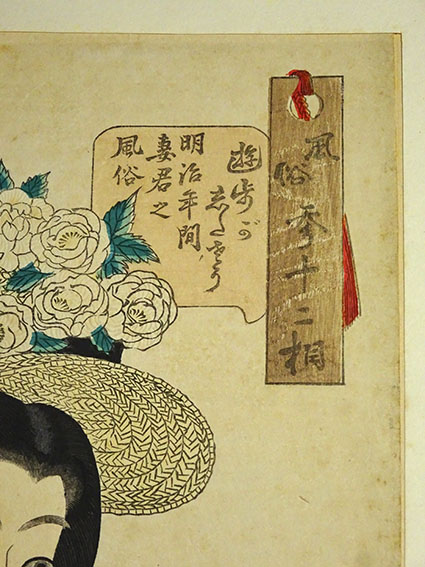 風俗三十二相
遊歩が
したさう
明治年間
妻君之
風俗